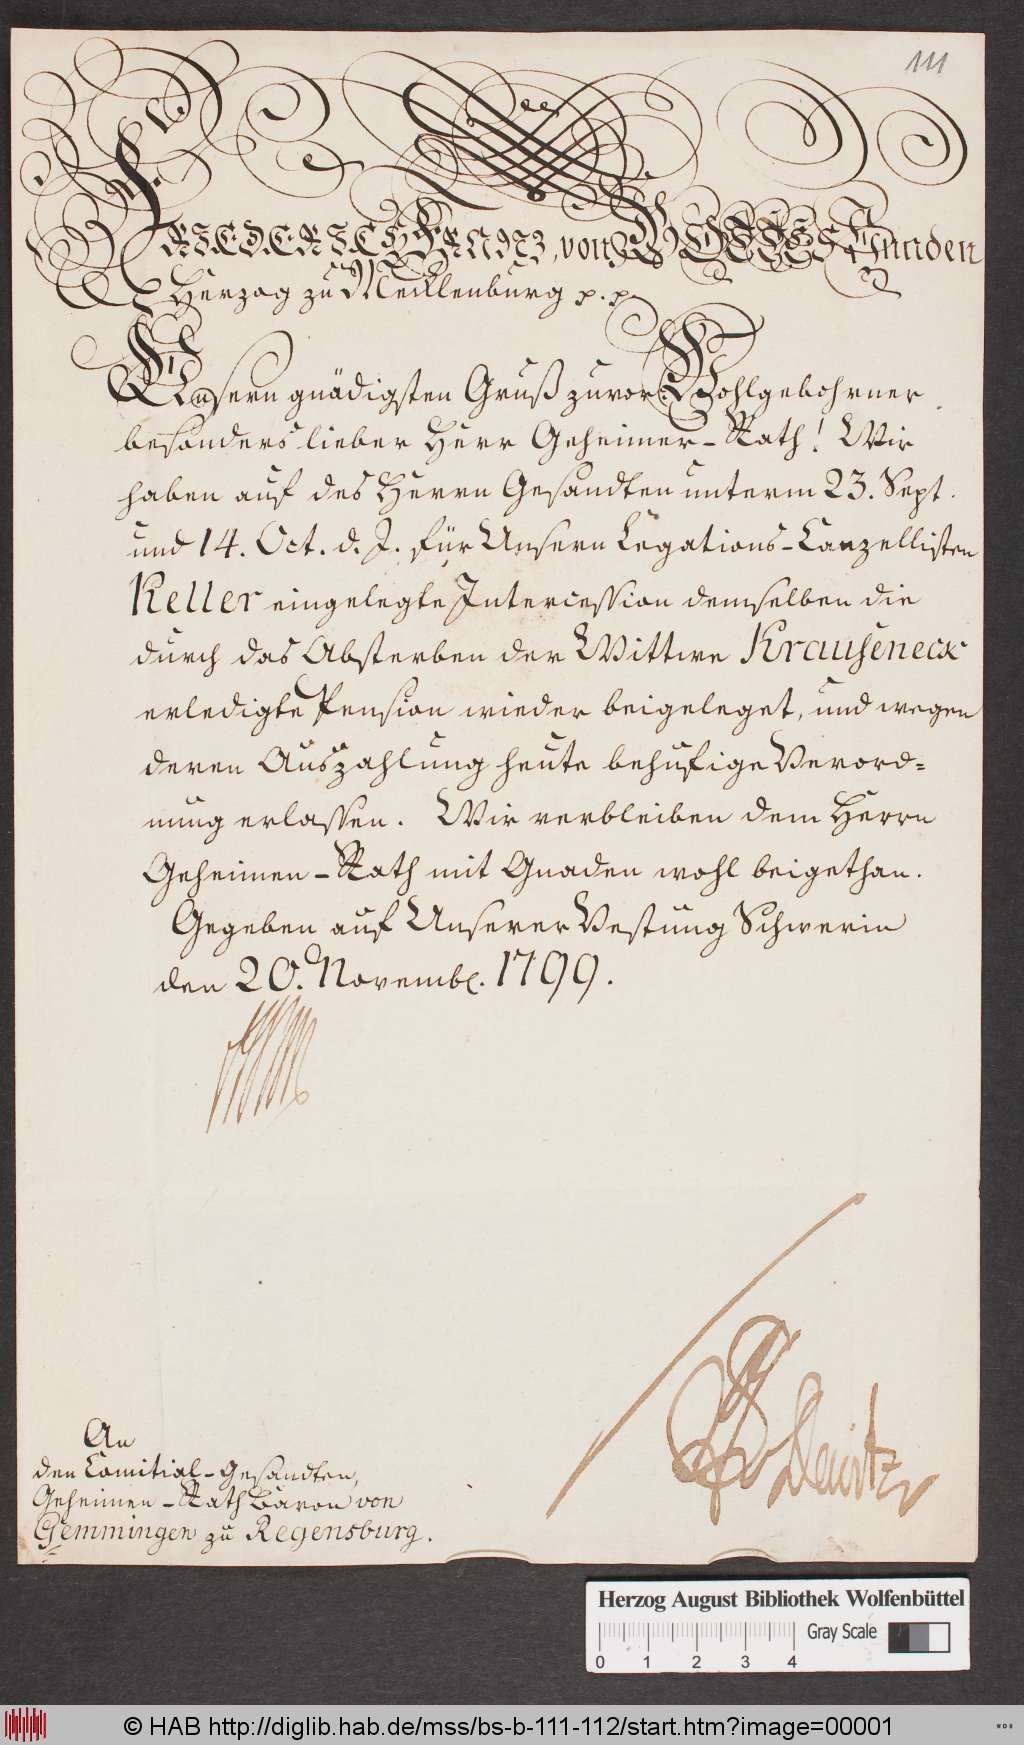 111
FRIEDERICH FRANZ, von GOTTES Gnaden
Herzog zu Mecklenburg p. p.
Unsern gnädigsten Gruß zuvor. Wohlgebohrner
besonders lieber Herr Geheimer-Rath! Wir
haben auf des Herrn Gesandten unterm 23. Sept.
und 14. Oct. d. J. für Unsern Legations-Canzellisten
Keller eingelegte Intercession demselben die
durch das Absterben der Wittwe Krauseneck
erledigte Pension wieder beigeleget, und wegen
deren Auszahlung heute behufige Verord=
nung erlassen. Wir verbleiben dem Herrn
Geheimen-Rath mit Gnaden wohl beigethan.
Gegeben auf Unserer Vestung Schwerin
den 20. Novembr. 1799.
An
den Comitial-Gesandten,
Geheimen-Rath Baron von
Gemmingen zu Regensburg.
Herzog August Bibliothek Wolfenbüttel
Gray Scale
0 1 2 3 4
© HAB http://diglib.hab.de/mss/bs-b-111-112/start.htm?image=00001